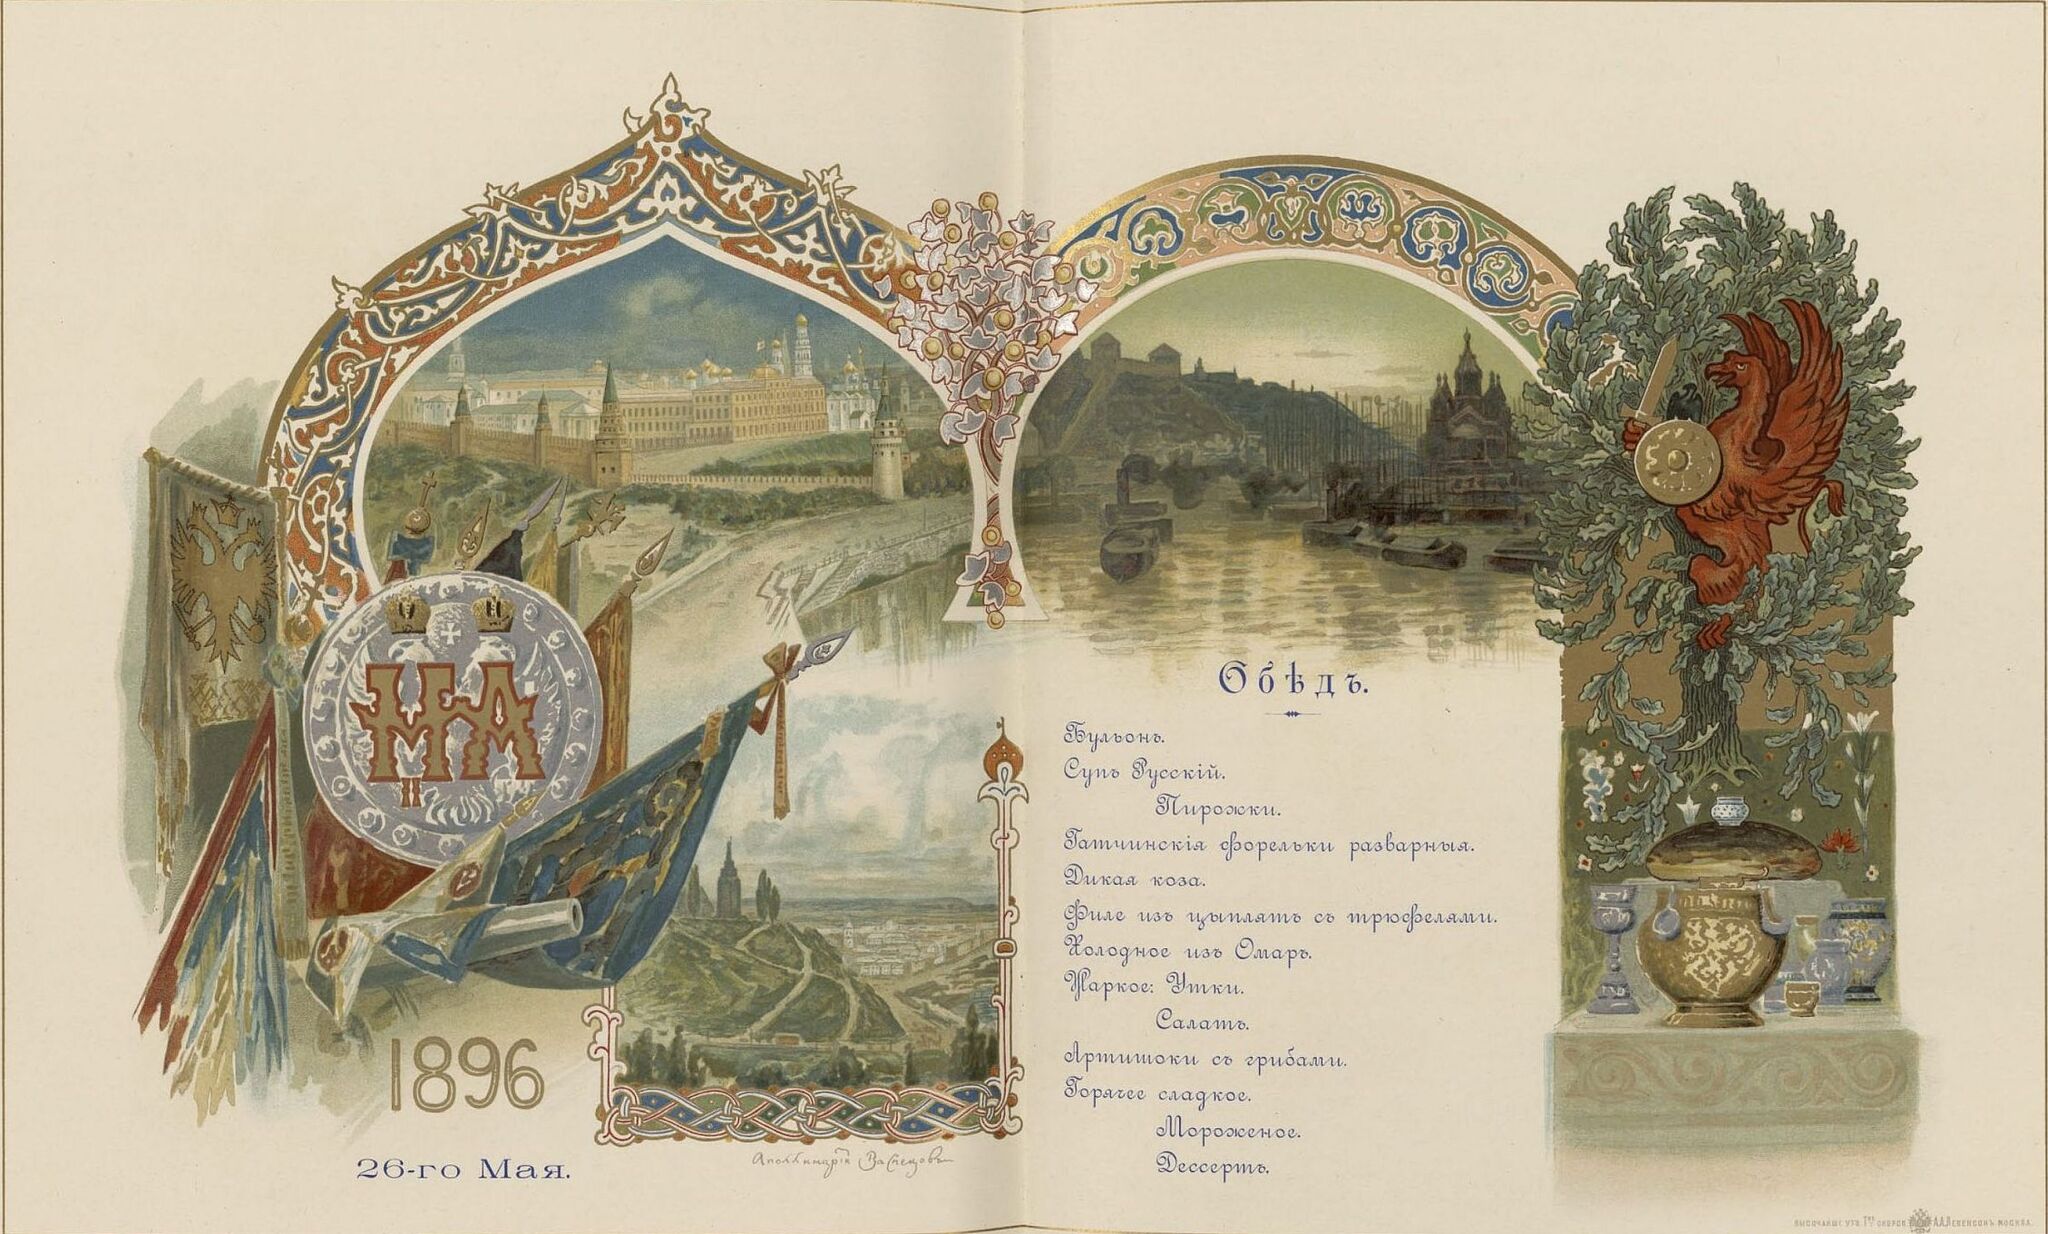 Н II А
1896
26-го Мая.
Аполлинарій Васнецовъ
Обѣдъ.
Бульонъ.
Супъ Русскій.
Пирожки.
Гатчинскія форельки разварныя.
Дикая коза.
Филе изъ цыплятъ съ трюфелями.
Холодное изъ Омаръ.
Жаркое: Утки.
Салатъ.
Артишоки съ грибами.
Горячее сладкое.
Мороженое.
Дессертъ.
ВЫСОЧАЙШЕ УТВ. Тво СКОРОП. А.А.ЛЕВЕНСОНЪ МОСКВА.